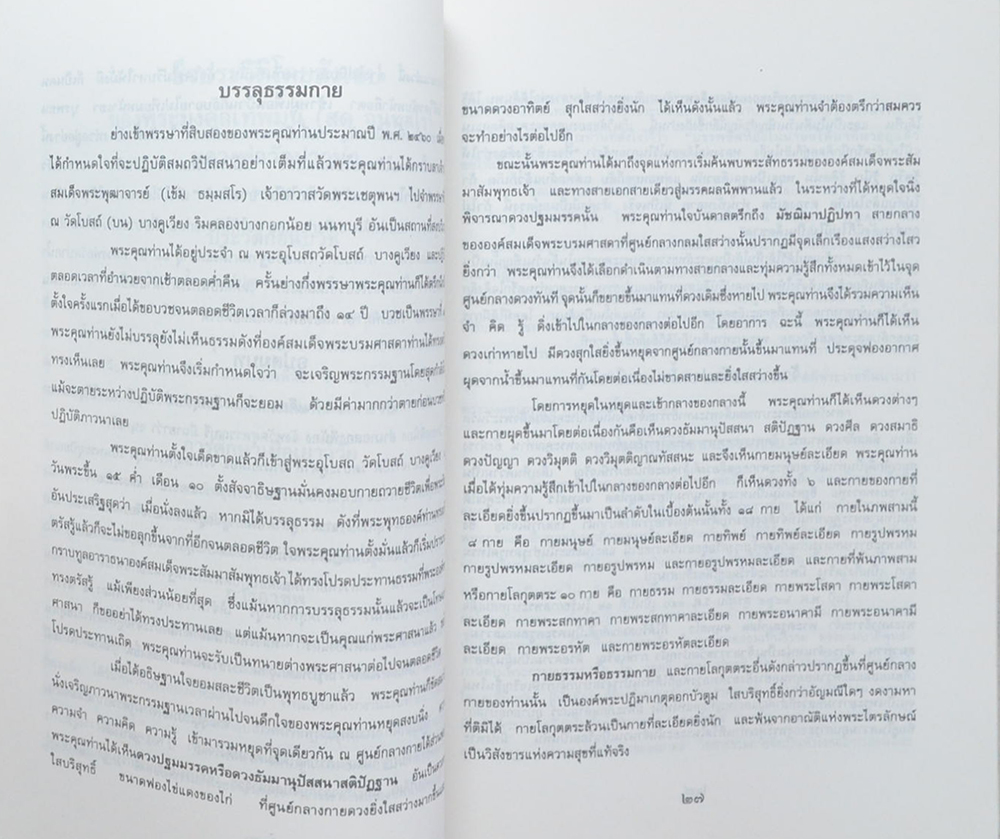 บรรลุธรรมกาย
ย่างเข้าพรรษาที่สิบสองของพระคุณท่านประมาณปี พ.ศ. ๒๔๖๐
ได้กำหนดใจที่จะปฏิบัติสมถวิปัสสนาอย่างเต็มที่แล้วพระคุณท่านได้กราบลา
สมเด็จพระพุฒาจารย์ (เข้ม ธมฺมสโร) เจ้าอาวาสวัดพระเชตุพนฯ ไปจำพรรษา
ณ วัดโบสถ์ (บน) บางคูเวียง ริมคลองบางกอกน้อย นนทบุรี อันเป็นสถานที่
พระคุณท่านได้อยู่ประจำ ณ พระอุโบสถวัดโบสถ์ บางคูเวียง
ตลอดเวลาที่อำนวยจากเช้าตลอดค่ำคืน ครั้นย่างกึ่งพรรษาพระคุณท่านก็ได้
ตั้งใจครั้งแรกเมื่อได้ขอบวชจนตลอดชีวิตเวลาก็ล่วงมาถึง ๑๔ ปี บวชเป็นพรรษาที่
พระคุณท่านยังไม่บรรลุยังไม่เห็นธรรมดังที่องค์สมเด็จพระบรมศาสดาท่านได้
ทรงเห็นเลย พระคุณท่านจึงเริ่มกำหนดใจว่า จะเจริญพระกรรมฐานโดยสุด
แม้จะตายระหว่างปฏิบัติพระกรรมฐานก็จะยอม ด้วยมีค่ามากกว่าตายก่อน
ปฏิบัติภาวนาเลย
พระคุณท่านตั้งใจเด็ดขาดแล้วก็เข้าสู่พระอุโบสถ วัดโบสถ์ บางคูเวียง
วันพระขึ้น ๑๕ ค่ำ เดือน ๑๐ ตั้งสัจจาธิษฐานมั่นคงมอบกายถวายชีวิตเพื่อ
อันประเสริฐสุดว่า เมื่อนั่งลงแล้ว หากมิได้บรรลุธรรม ดังที่พระพุทธองค์ท่าน
ตรัสรู้แล้วก็จะไม่ขอลุกขึ้นจากที่อีกจนตลอดชีวิต ใจพระคุณท่านตั้งมั่นแล้วก็เริ่ม
กราบทูลอาราธนาองค์สมเด็จพระสัมมาสัมพุทธเจ้า ได้ทรงโปรดประทานธรรมที่
ทรงตรัสรู้ แม้เพียงส่วนน้อยที่สุด ซึ่งแม้นหากการบรรลุธรรมนั้นแล้วจะเป็น
ศาสนา ก็ขออย่าได้ทรงประทานเลย แต่แม้นหากจะเป็นคุณแก่พระศาสนาแล้ว
โปรดประทานเถิด พระคุณท่านจะรับเป็นทนายต่างพระศาสนาต่อไปจนตลอดชีวิต
เมื่อได้อธิษฐานใจยอมสละชีวิตเป็นพุทธบูชาแล้ว พระคุณท่านก็
นั่งเจริญภาวนาพระกรรมฐานเวลาผ่านไปจนดึกใจของพระคุณท่านหยุดสงบนิ่ง
ความจำ ความคิด ความรู้ เข้ามารวมหยุดที่จุดเดียวกัน ณ ศูนย์กลางกาย
พระคุณท่านได้เห็นดวงปฐมมรรคหรือดวงธัมมานุปัสสนาสติปัฏฐาน อันเป็น
ใสบริสุทธิ์ ขนาดฟองไข่แดงของไก่ ที่ศูนย์กลางกายดวงยิ่งใสสว่างมากขึ้น
ขนาดดวงอาทิตย์ สุกใสสว่างยิ่งนัก ได้เห็นดังนั้นแล้ว พระคุณท่านจำต้องตรึกว่าสมควร
จะทำอย่างไรต่อไปอีก
ขณะนั้นพระคุณท่านได้มาถึงจุดแห่งการเริ่มค้นพบพระสัทธรรมขององค์สมเด็จพระสัม
มาสัมพุทธเจ้า และทางสายเอกสายเดียวสู่มรรคผลนิพพานแล้ว ในระหว่างที่ได้หยุดใจนิ่ง
พิจารณาดวงปฐมมรรคนั้น พระคุณท่านใจบันดาลตรึกถึง มัชฌิมาปฏิปทา สายกลาง
ขององค์สมเด็จพระบรมศาสดาที่ศูนย์กลางกลมใสสว่างนั้นปรากฏมีจุดเล็กเรืองแสงสว่างไสว
ยิ่งกว่า พระคุณท่านจึงได้เลือกดำเนินตามทางสายกลางและทุ่มความรู้สึกทั้งหมดเข้าไว้ในจุด
ศูนย์กลางดวงทันที จุดนั้นก็ขยายขึ้นมาแทนที่ดวงเดิมซึ่งหายไป พระคุณท่านจึงได้รวมความเห็น
จำ คิด รู้ ดิ่งเข้าไปในกลางของกลางต่อไปอีก โดยอาการ ฉะนี้ พระคุณท่านก็ได้เห็น
ดวงเก่าหายไป มีดวงสุกใสยิ่งขึ้นหยุดจากศูนย์กลางกายนั้นขึ้นมาแทนที่ ประดุจฟองอากาศ
ผุดจากน้ำขึ้นมาแทนที่กันโดยต่อเนื่องไม่ขาดสายและยิ่งใสสว่างขึ้น
โดยการหยุดในหยุดและเข้ากลางของกลางนี้ พระคุณท่านก็ได้เห็นดวงต่างๆ
และกายผุดขึ้นมาโดยต่อเนื่องกันคือเห็นดวงธัมมานุปัสสนา สติปัฏฐาน ดวงศีล ดวงสมาธิ
ดวงปัญญา ดวงวิมุตติ ดวงวิมุตติญาณทัสสนะ และจึงเห็นกายมนุษย์ละเอียด พระคุณท่าน
เมื่อได้ทุ่มความรู้สึกเข้าไปในกลางของกลางต่อไปอีก ก็เห็นดวงทั้ง ๖ และกายของกายที่
ละเอียดยิ่งขึ้นปรากฏขึ้นมาเป็นลำดับในเบื้องต้นนั้นทั้ง ๑๘ กาย ได้แก่ กายในภพสามนี้
๘ กาย คือ กายมนุษย์ กายมนุษย์ละเอียด กายทิพย์ กายทิพย์ละเอียด กายรูปพรหม
กายรูปพรหมละเอียด กายอรูปพรหม และกายอรูปพรหมละเอียด และกายที่พ้นภพสาม
หรือกายโลกุตตระ ๑๐ กาย คือ กายธรรม กายธรรมละเอียด กายพระโสดา กายพระโสดา
ละเอียด กายพระสกทาคา กายพระสกทาคาละเอียด กายพระอนาคามี กายพระอนาคามี
ละเอียด กายพระอรหัต และกายพระอรหัตละเอียด
กายธรรมหรือธรรมกาย และกายโลกุตตระอื่นดังกล่าวปรากฏขึ้นที่ศูนย์กลาง
กายของท่านนั้น เป็นองค์พระปฏิมาเกตุดอกบัวตูม ใสบริสุทธิ์ยิ่งกว่าอัญมณีใดๆ งดงามหา
ที่ติมิได้ กายโลกุตตระล้วนเป็นกายที่ละเอียดยิ่งนัก และพ้นจากอาณัติแห่งพระไตรลักษณ์
เป็นวิสังขารแห่งความสุขที่แท้จริง
๒๗